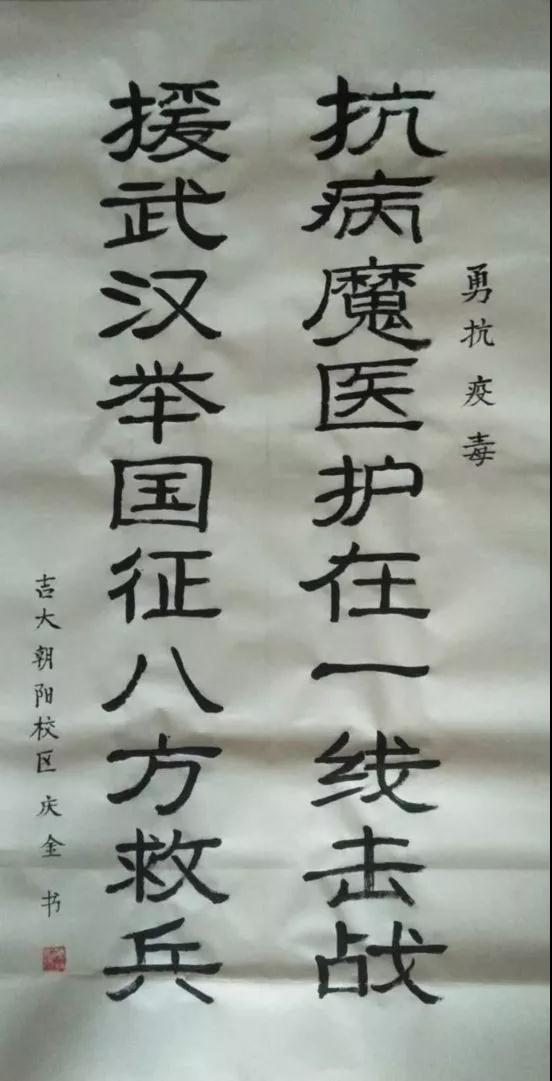 勇抗疫毒
抗病魔医护在一线击战
援武汉举国征八方救兵
吉大朝阳校区庆金书